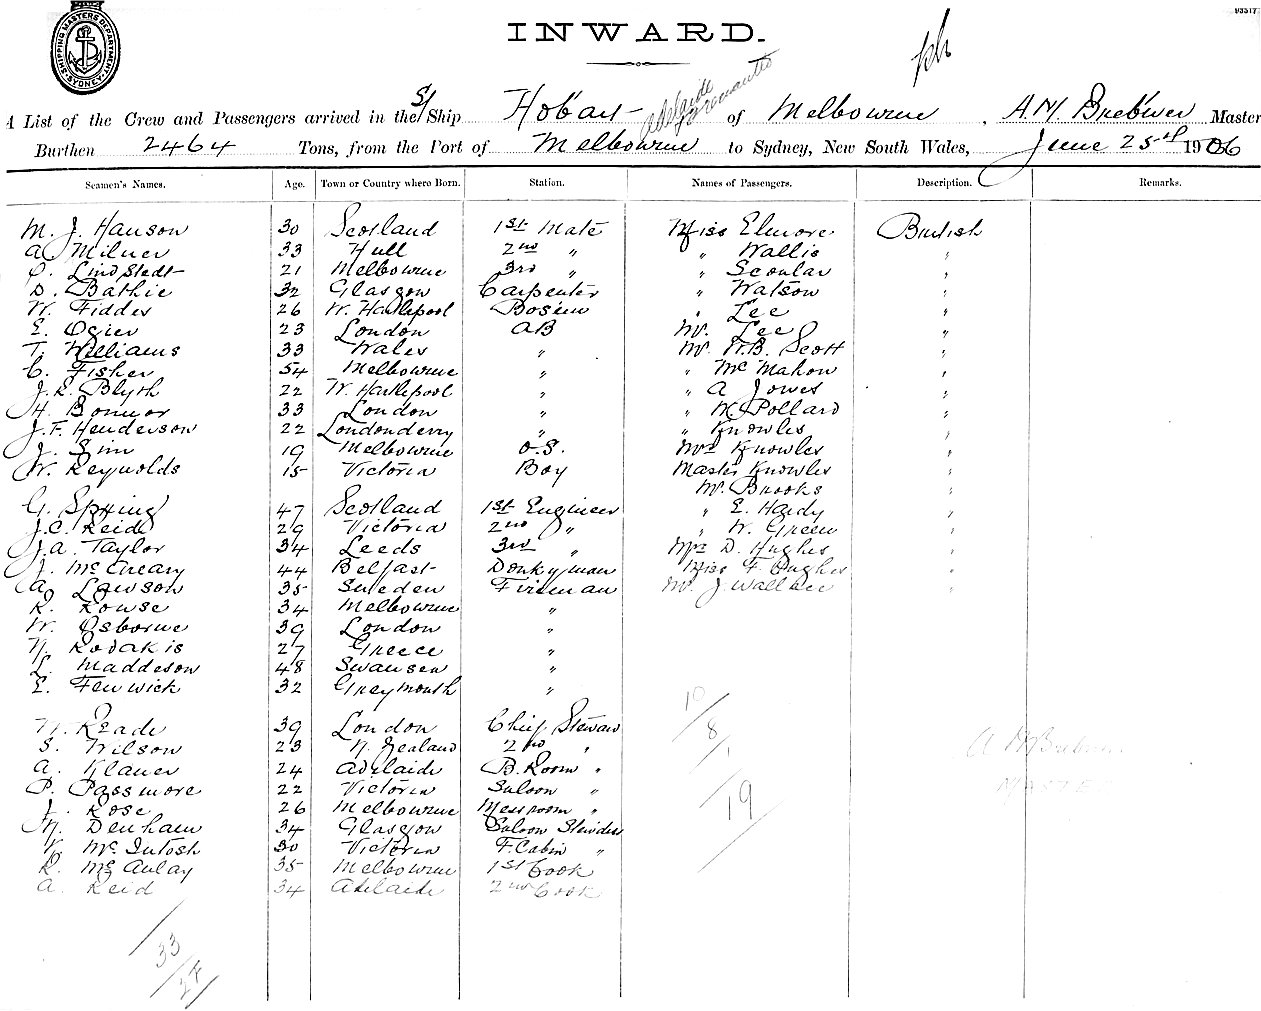 93517
SHIPPING MASTERS DEPARTMENT SYDNEY
INWARD.
A List of the Crew and Passengers arrived in the S/ Ship Hobart of Melbourne, A. M. Brebner Master
Adelaide Fremantle
Burthen 2464 Tons, from the Port of Melbourne to Sydney, New South Wales, June 25th 1906
Seamen's Names. Age. Town or Country where Born. Station. Names of Passengers. Description. Remarks.
M. J. Hanson 30 Scotland 1st Mate Miss Elmore British
A. Milner 33 Hull 2nd " " Wallis "
O. Lindstedt 21 Melbourne 3rd " " Scoular "
D. Bathie 32 Glasgow Carpenter " Watson "
W. Fiddes 26 W. Hartlepool Bosun " Lee "
E. Ogier 23 London AB Mr. Lee "
T. Williams 33 Wales " Mr. W.B. Scott "
C. Fisher 54 Melbourne " " McMahon "
J. R. Blyth 22 W. Hartlepool " " A Jones "
H. Bonnor 33 London " " W. Pollard "
J. F. Henderson 22 Londonderry " " Knowles "
J. Sim 19 Melbourne O.S. Mrs Knowles "
W. Reynolds 15 Victoria Boy Master Knowles "
Mr. Brooks "
G. Spring 47 Scotland 1st Engineer " E. Hardy "
J. C. Reid 29 Victoria 2nd " " W. Green "
J. A. Taylor 34 Leeds 3rd " Mrs D. Hughes "
J. McCreary 44 Belfast Donkyman Miss F. Hughes "
A. Lawson 35 Sweden Fireman Mr. J. Wallace "
R. Rowse 34 Melbourne "
W. Osborne 39 London "
N. Rodakis 27 Greece "
L. Maddeson 48 Swansea "
E. Fenwick 32 Greymouth "
W. Reade 39 London Chief Steward
S. Wilson 23 N. Zealand 2nd "
A. Klauer 24 Adelaide B. Room "
P. Passmore 22 Victoria Saloon "
J. Rose 26 Melbourne Messroom "
M. Denham 34 Glasgow Saloon Stewdess
K. McIntosh 30 Victoria F. Cabin "
R. McAulay 35 Melbourne 1st Cook
A. Reid 34 Adelaide 2nd Cook
10/8/1
/19
A M Brebner
MASTER
33/27